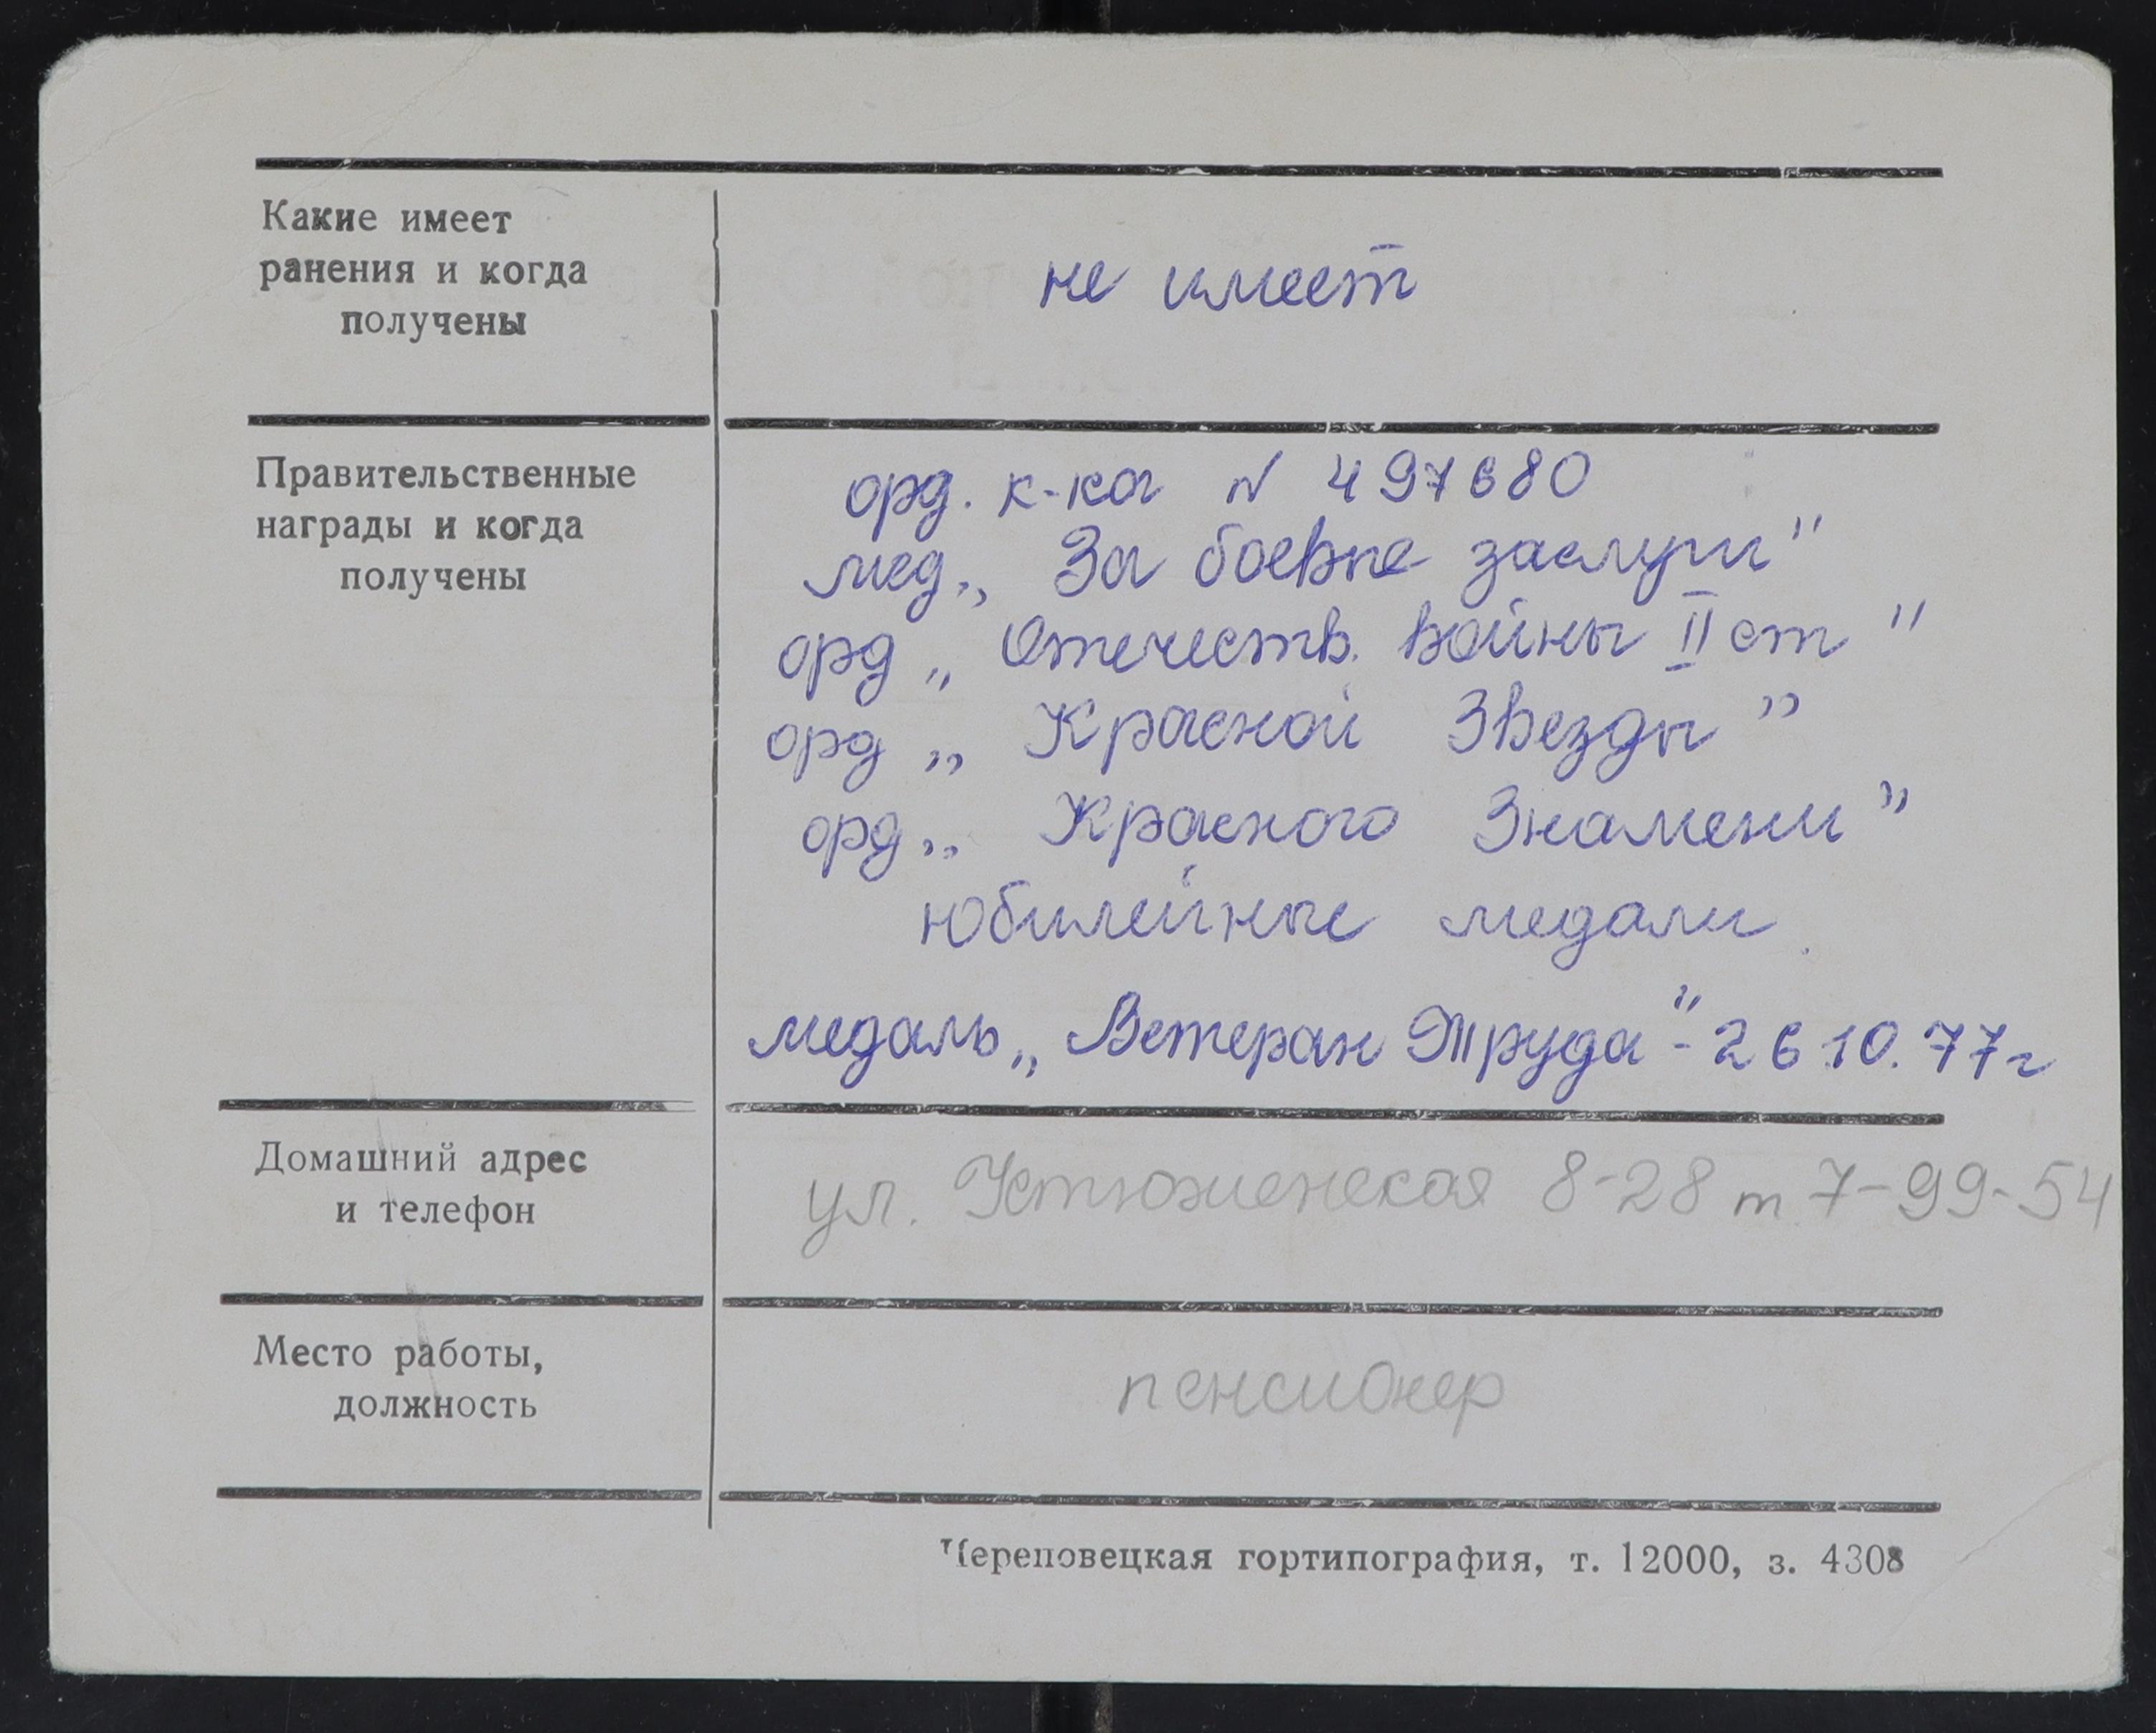 Какие имеет
ранения и когда
получены
не имеет
Правительственные
награды и когда
получены
орд. к-ка N 497680
мед „За боевые заслуги"
орд „Отечеств. Войны II ст"
орд „Красной Звезды"
орд „Красного Знамени"
юбилейные медали.
медаль „Ветеран Труда" - 26.10.77г
Домашний адрес
и телефон
ул. Устюженская 8-28 т. 7-99-54
Место работы,
должность
пенсионер
Череповецкая гортипография, т. 12000, з. 4308